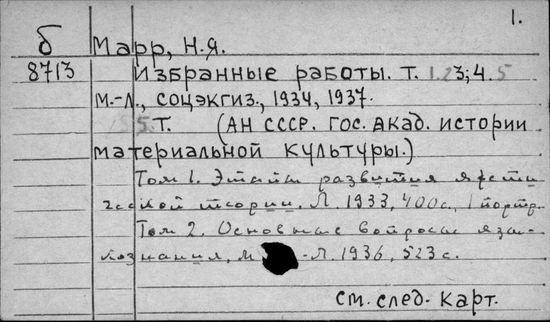 1.
б Марр, Н.Я.
8713 Избранные работы. Т. 1.23;4.5
М.-Л., соцэкгиз., 1934, 1937.
5 т. (АН СССР. Гос. акад. истории
материальной культуры.)
Том 1. Этапы развития яфети
ческой теории. Л. 1933, 400с., 1 портр.
Том 2. Основные вопросы язы-
кознания, М -Л. 1936, 523 с.
см. след. карт.